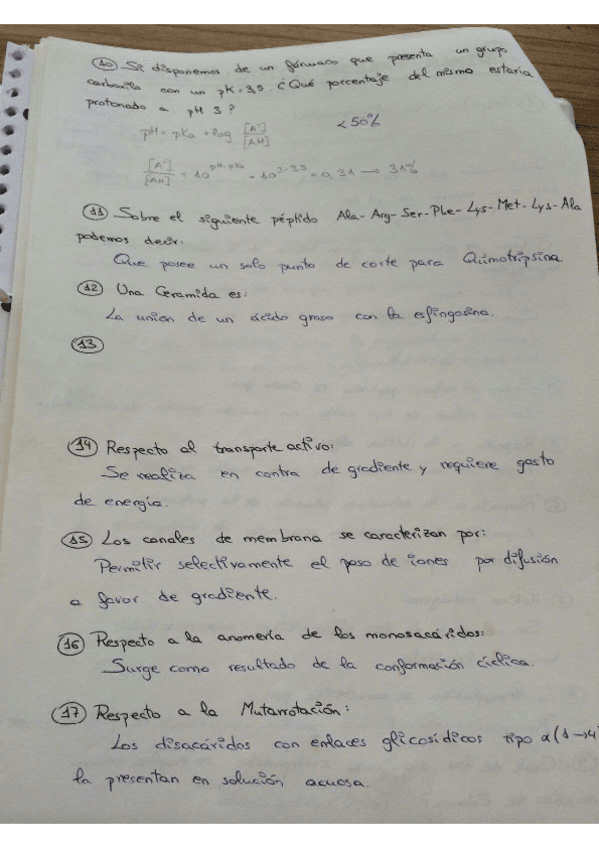 10 Si disponemos de un fármaco que presenta un grupo
carboxilo con un pK = 3,5. ¿Qué porcentaje del mismo estaría
protonado a pH 3?
< 50%
pH = pKa + log [A⁻]/[AH]
[A⁻]/[AH] = 10^pH-pKa = 10^3-3,5 = 0,31 → 31%
11 Sobre el siguiente péptido Ala-Arg-Ser-Phe-Lys-Met-Lys-Ala
podemos decir:
Que posee un solo punto de corte para Quimotripsina.
12 Una Ceramida es:
La unión de un ácido graso con la esfingosina.
13
14 Respecto al transporte activo:
Se realiza en contra de gradiente y requiere gasto
de energía.
15 Los canales de membrana se caracterizan por:
Permitir selectivamente el paso de iones por difusión
a favor de gradiente.
16 Respecto a la anomería de los monosacáridos:
Surge como resultado de la conformación cíclica.
17 Respecto a la Mutarrotación:
Los disacáridos con enlaces glicosídicos tipo α(1→4
la presentan en solución acuosa.